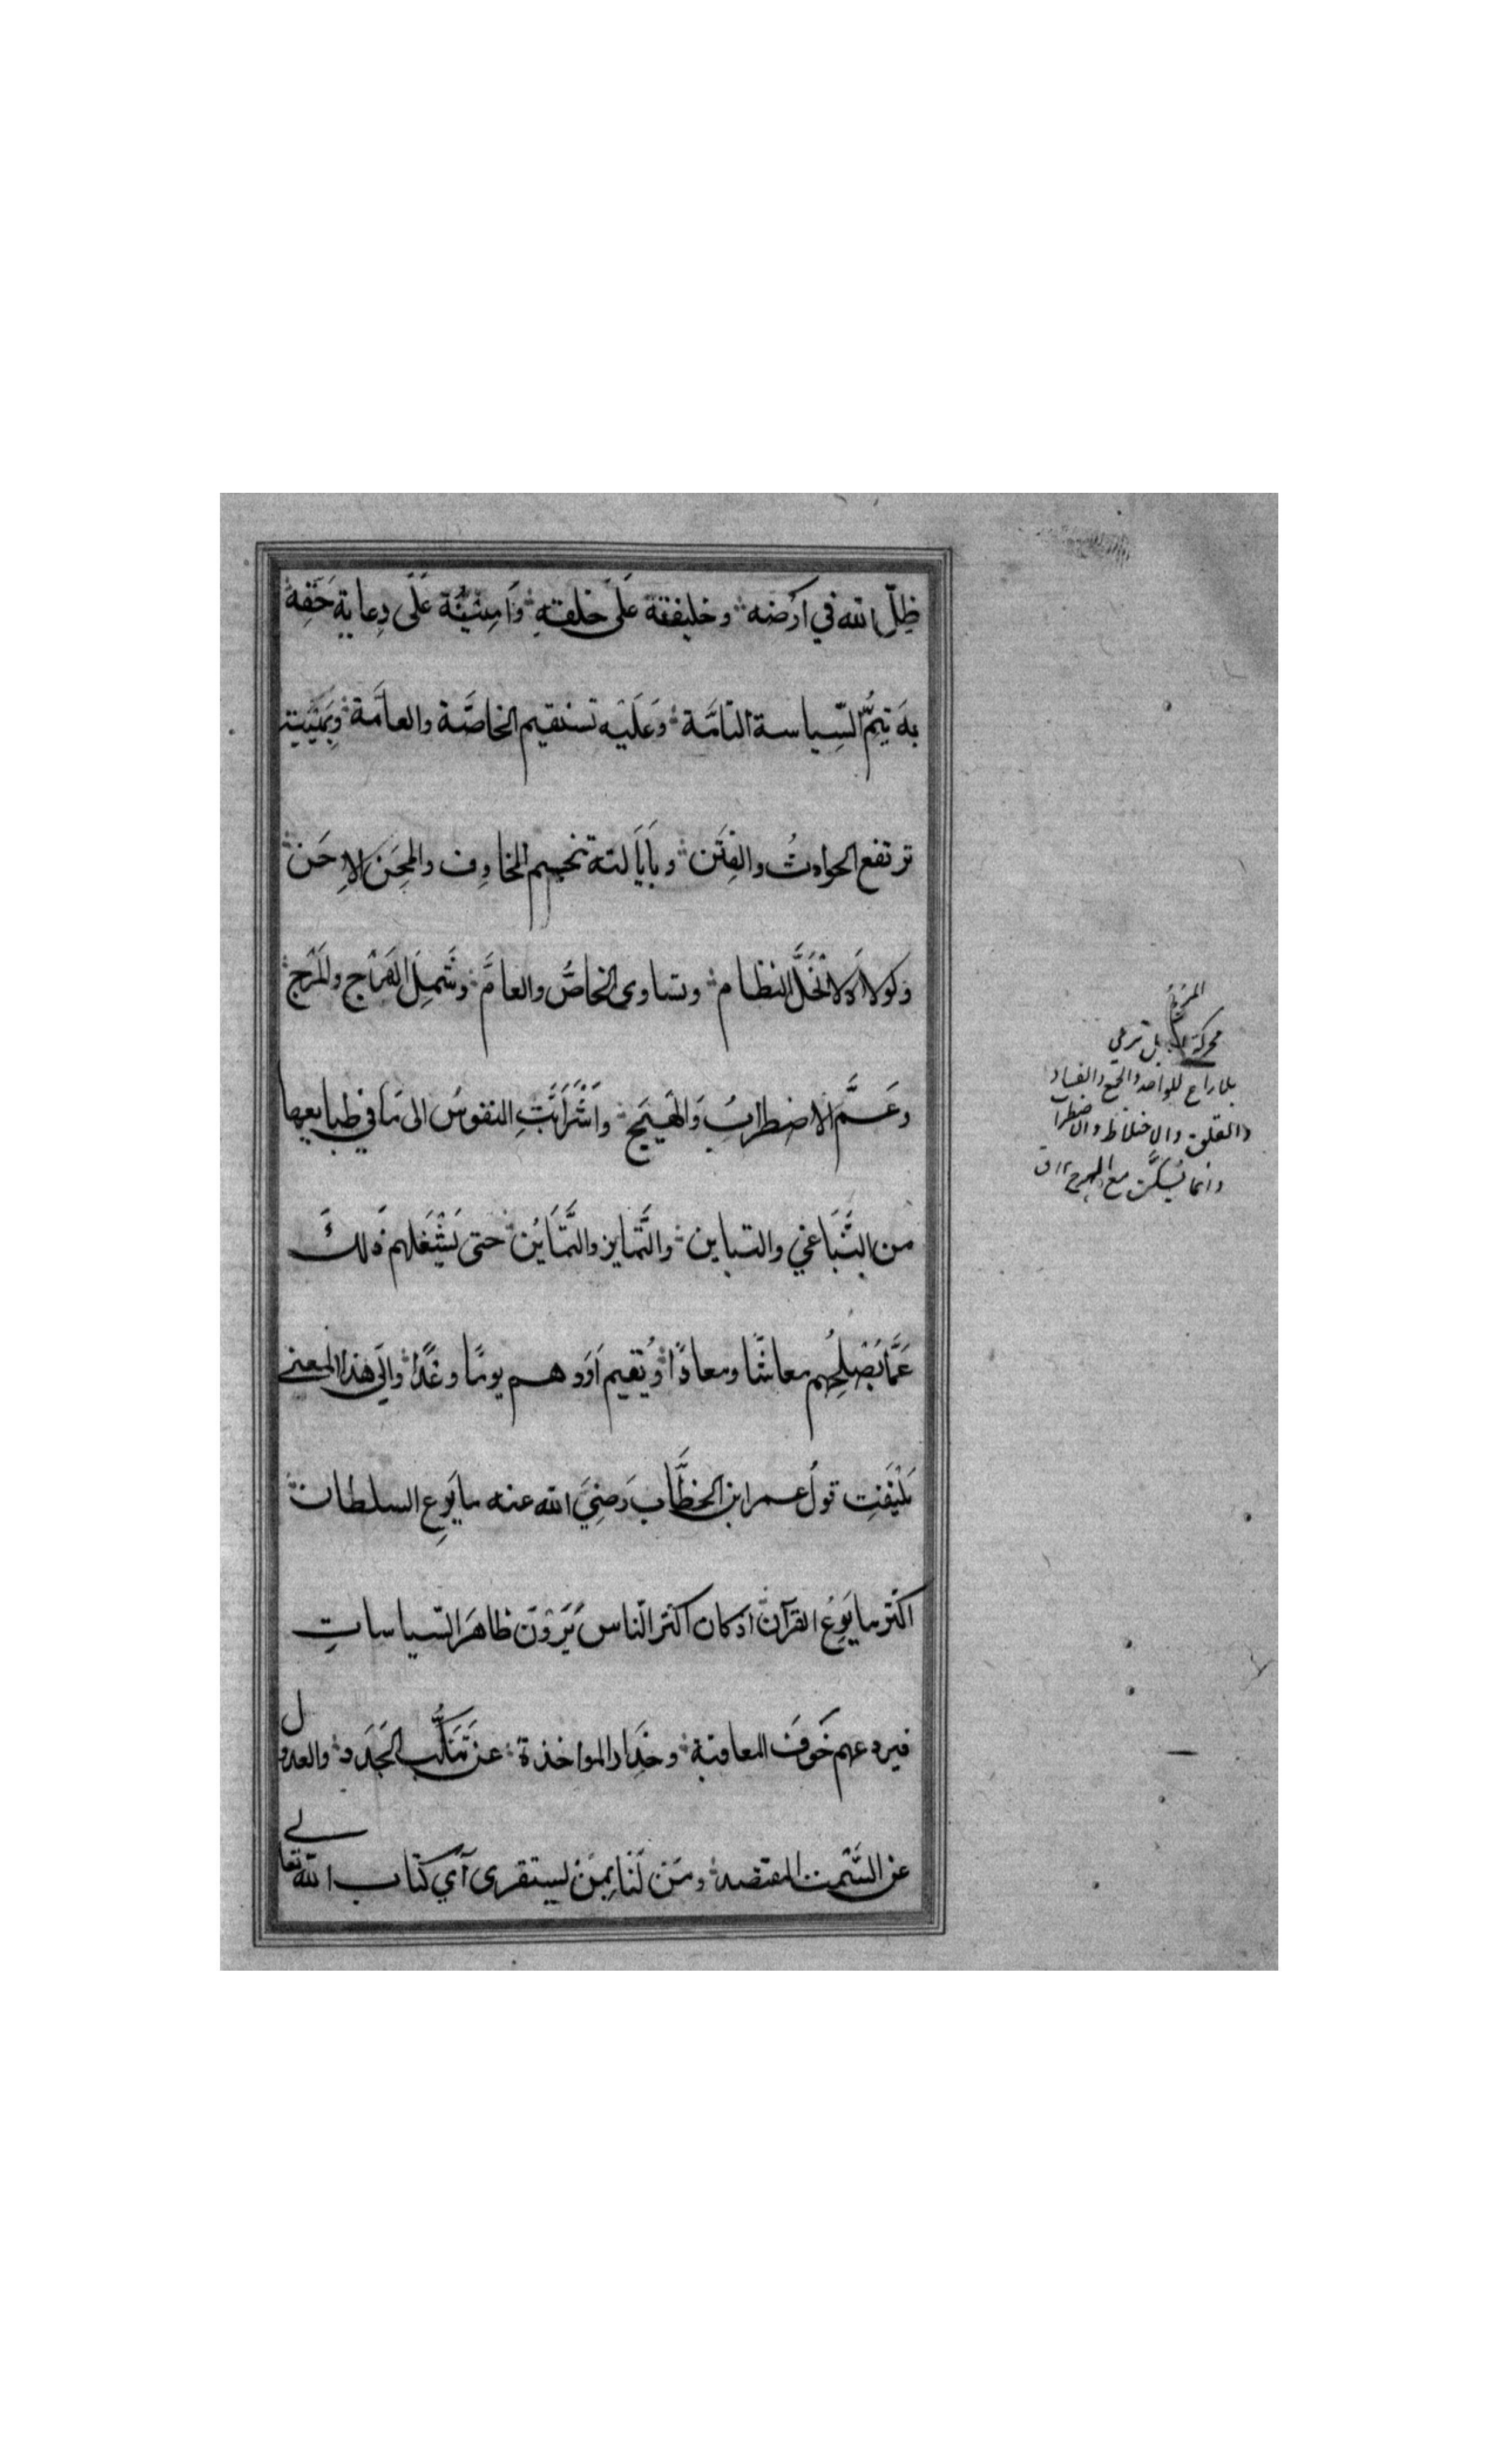 ظِلّ الله في ارَضه وخليفته عَلَى خلقتهِ وَامِينُهُ عَلَى رِعايةِ حَقِهِ
بهِ تَتِمُّ السِّياسة التامَّة وَعَلَيْه تستقيم الخاصَّة والعامَّة وَبِهَيْبَتِهِ
ترتفع الحوادثُ والفِتَن وبِاَيالته تنحسم المخاوِف والمِحَن الاِحَن
وَلولاهُ لانْحَلَّ النظام وتساوى الخاصُّ والعامَّ وشَمِلَ الهَرْج والمَرْج
وَعَمَّ الاضطرابُ وَالهَيَج وَاشْرَأَبَّتِ النفوسُ الى مَا في طبايعها
من التَّبَاغي والتباين والتَّمايز والتَّمَايُن حتى يَشْغَلهم ذَلكَ
عَمَّا يُصْلِحُهم معاشًا ومعادًا ويُقيم اَوَدهم يومًا وغدًا والَى هذا المعنى
يَلْتَفِت قولُ عمر ابن الخطَّاب رَضِيَ الله عنه ما يَزِع السلطان
اكثر ما يَزِعُ القرآن اذ كان اكثر الناس يَرَوْنَ ظاهَر السّياساتِ
فيردعهم خَوفَ المعاقبة وحَِذار المواخذة عن تَنَكُّب الجَدَد والعدول
عن السَّمت المقتصد ومَن لَنا بِمَنْ يستقرى آي كتاب الله تعالى
المرج
محركة الابل ترعى
بلا راع للواحد والجمع والفساد
والقلق والاختلاط والاضطراب
وانما يُسَكَّن مع الهرج ق